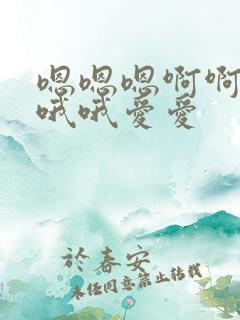 嗯嗯嗯啊啊
哦哦爱爱
於春安
未经同意禁止转载